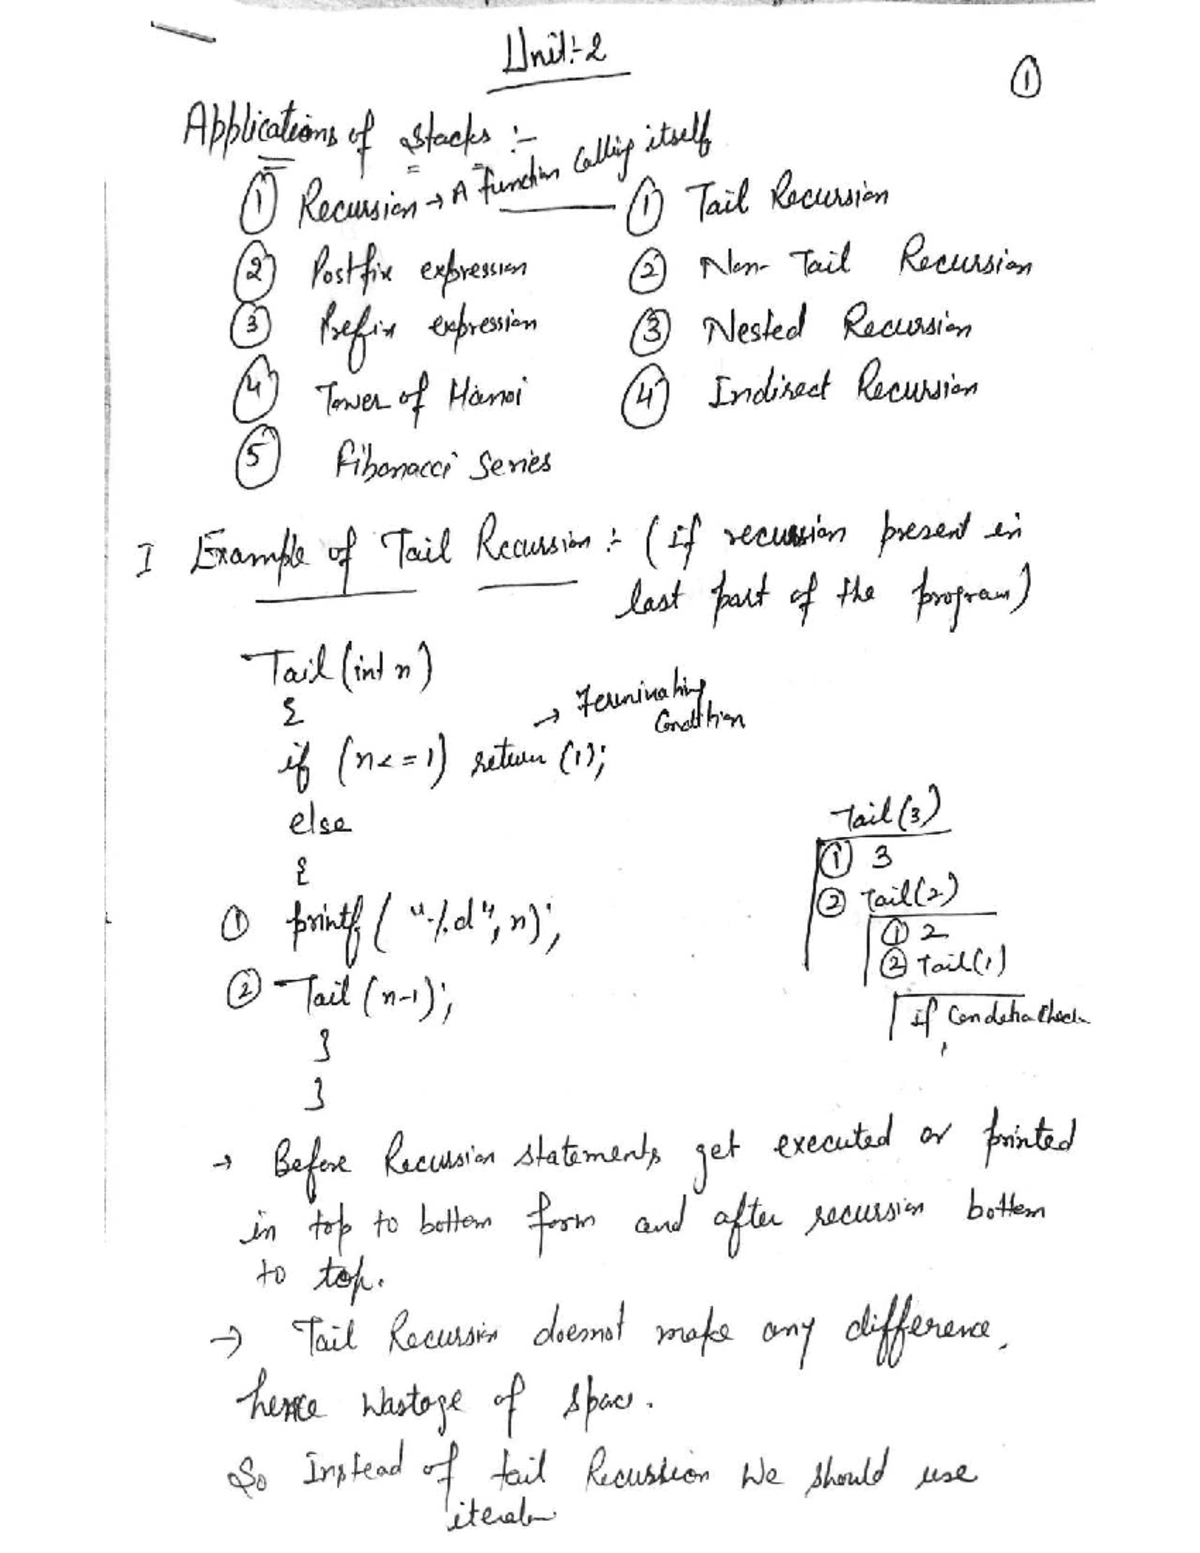 Unit:-2
①
Applications of Stacks :-
① Recursion → A function calling itself
② Postfix expression
③ Prefix expression
④ Tower of Hanoi
⑤ Fibonacci Series
① Tail Recursion
② Non-Tail Recursion
③ Nested Recursion
④ Indirect Recursion
I Example of Tail Recursion :- (if recursion present in
last part of the program)
Tail (int n)
{
if (n<=1) return (1); → Terminating Condition
else
{
① printf ("%d", n);
② Tail (n-1);
}
}
Tail(3)
① 3
② Tail(2)
① 2
② Tail(1)
if Condition Check
→ Before Recursion statements get executed or printed
in top to bottom form and after recursion bottom
to top.
→ Tail Recursion doesnot make any difference,
hence wastage of space.
So Instead of tail Recursion we should use
iteration